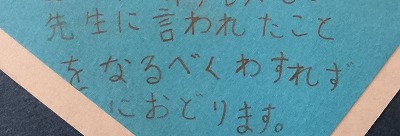 先生に言われたこと
をなるべくわすれず
におどります。